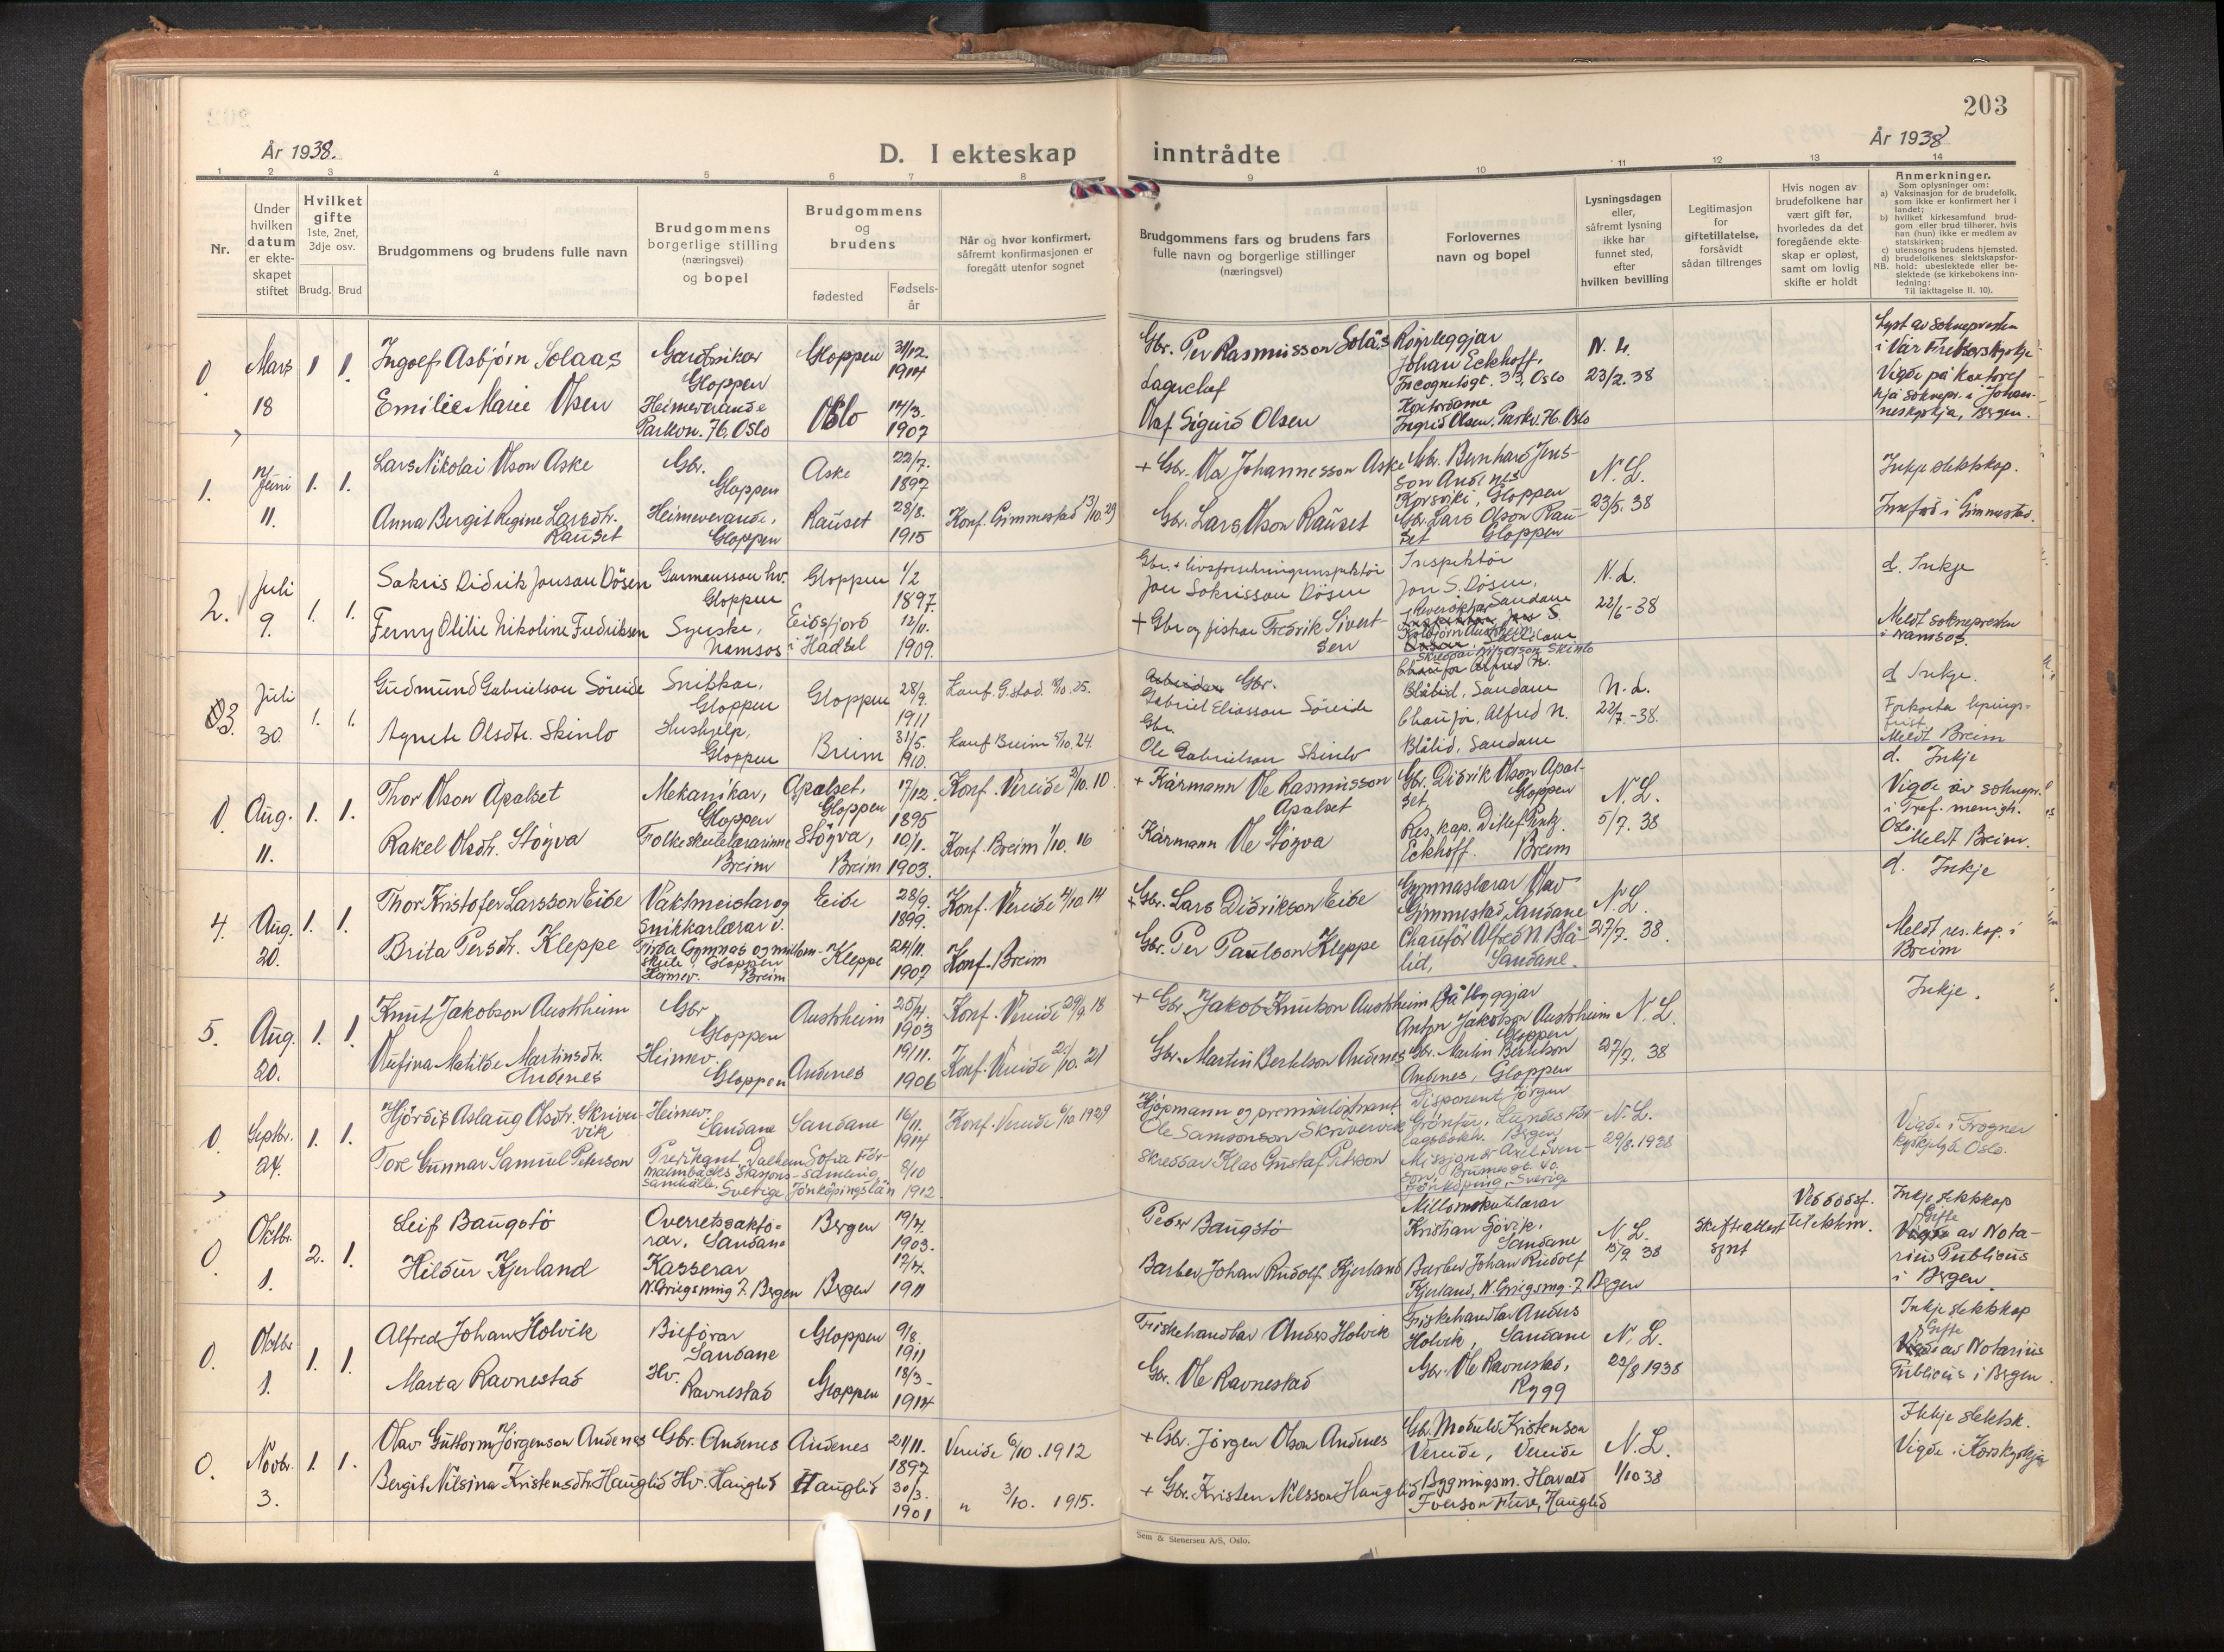 203
År 1938.
D. I ekteskap
inntrådte
År 1938
1
2
3
4
5
6
7
8
9
10
11
12
13
14
Nr.
Under hvilken datum er ekteskapet stiftet
Hvilket gifte
1ste, 2net, 3dje osv.
Brudg.
Brud
Brudgommens og brudens fulle navn
Brudgommens borgerlige stilling (næringsvei) og bopel
Brudgommens og brudens
fødested
Fødselsår
Når og hvor konfirmert, såfremt konfirmasjonen er foregått utenfor sognet
Brudgommens fars og brudens fars fulle navn og borgerlige stillinger (næringsvei)
Forlovernes navn og bopel
Lysningsdagen eller, såfremt lysning ikke har funnet sted, efter hvilken bevilling
Legitimasjon for giftetillatelse, forsåvidt sådan tiltrenges
Hvis nogen av brudefolkene har vært gift før, hvorledes da det foregående ekteskap er opløst, samt om lovlig skifte er holdt
Anmerkninger.
Som oplysninger om:
a) Vaksinasjon for de brudefolk, som ikke er konfirmert her i landet;
b) hvilket kirkesamfund brudgom eller brud tilhører, hvis han (hun) ikke er medlem av statskirken;
c) utensogns brudens hjemsted.
d) brudefolkenes slektskapsforhold: ubeslektede eller beslektede (se kirkebokens innledning:
NB. Til iakttagelse II. 10).
0 Mars 18 1 1.
Ingolf Asbjørn Solaas
Gardbrukar Gloppen
Gloppen 31/12. 1914
Gbr. Per Rasmusson Solås
Røyrleggjar Johan Eckhoff, Incognitogt. 33, Oslo
N. L. 23/2. 38
Lyst av soknepresten i Vår Frelserskyrkje
Vigde på kontoret hjå sokнepr. i Johanneskyrkja, Bergen.
Emilie Marie Olsen
Heimeverande Parkvn. 76, Oslo
Oslo 14/3. 1907
Laguelaf
Olaf Sigurd Olsen
Kontordame Ingrid Olsen, Parkv. 76. Oslo
1. Juni 11. 1. 1.
Lars Nikolai Olson Aske
Gbr. Gloppen
Aske 22/7. 1897
+ Gbr. Ola Johannesson Aske
Gbr. Bernhard Jensson Andenes Korsviki, Gloppen
N. L. 23/5. 38
Inkje slektskap.
Anna Bergit Regine Larsdtr. Rauset
Heimeverande, Gloppen
Rauset 28/8. 1915
Konf. Gimmestad 13/10. 29
Gbr. Lars Olson Rauset
Gbr. Lars Olson Rauset Gloppen
Innførd i Gimmestad.
2. Juli 9. 1. 1.
Sakris Didrik Jonson Døsen
Gloppen
Gloppen 1/2 1897.
Gbr. + livsforsikringsinspektør Jon Sakrisson Døsen
Inspektør Jon S. Døsen, Sandane
N. L. 22/6 - 38
d. Inkje
Ferny Olilie Nikoline Fredriksen
Syerske, Namsos
Eidsfjord i Hadsel 12/11. 1909.
+ Gbr og fiskar Fredrik Sivertsen
Meldt sokneprestn i Namsos.
3. Juli 30. 1. 1.
Gudmund Gabrielson Søreide
Snikkar, Gloppen
Gloppen 28/9. 1911
Konf. G.stad. 18/10. 25.
Gbr. Gabriel Eliasson Søreide
Blålid, Sandane
N. L. 22/7. - 38.
d. Inkje.
Forkorta lysings-frist
Meldt Breim
Agnete Olsdtr. Skinlo
Hushjelp, Gloppen
Breim 31/5. 1910.
Konf Breim 5/10. 24.
Gbr. Ole Gabrielson Skinlo
Chaufør, Alfred N. Blålid, Sandane
0 Aug. 11. 1. 1.
Thor Olson Apalset
Mekanikar, Gloppen
Apalset, Gloppen 17/12. 1895
Konf. Vereide 2/10. 10
+ Kårmann Ole Rasmusson Apalset
Gbr. Didrik Olson Apalset, Gloppen
N. L. 5/7. 38
d. Inkje
Vigde av soknepr. i Tref. menigh. Oslo.
Meldt Breim.
Rakel Olsdtr. Støyva
Folkeskulelærarinne Breim
Støyva, Breim 10/1. 1903.
Konf. Breim 1/10. 16
Kårmann Ole Støyva
Res. kap. Ditlef Eckhoff. Breim
4. Aug. 20. 1. 1.
Thor Kristofer Larsson Eide
Vaktmeistar og snikkarlærar v. Firda Gymnas og mellomskule Gloppen
Eide 28/9. 1899.
Konf. Vereide 4/10. 14
+ Gbr. Lars Didrikson Eide
Gymnaslærar Olav Gimmestad, Sandane
N. L. 27/7. 38.
d. Inkje
Brita Persdtr. Kleppe
Heimev. Breim
Kleppe 24/11. 1907
Konf. Breim
Gbr. Per Paulson Kleppe
Chaufør Alfred N. Blålid, Sandane.
Meldt res. kap. i Breim
5. Aug. 20. 1. 1.
Knut Jakobson Austrheim
Gbr Gloppen
Austrheim 25/4. 1903
Konf. Vereide 29/9. 18
+ Gbr. Jakob Knutson Austrheim
Båtbyggjar Anton Jakobson Austrheim Gloppen
N. L. 27/7. 38
Inkje.
Rufina Matilde Martinsdtr. Andenes
Heimev. Gloppen
Andenes 19/11. 1906
Konf. Vereide 2/10. 21
Gbr. Martin Bertelson Andenes
Gbr. Martin Bertelson Andenes, Gloppen
0 Septbr. 24. 1. 1.
Hjørdis Aslaug Olsdtr. Skrivervik
Heimev. Sandane
Sandane 16/11. 1914
Konf. Vereide 6/10 1929
Kjøpmann og premierløytnant Ole Samsonson Skrivervik
Disponent Jørgen Bergen
N. L. 29/8. 1938
Vigde i Frogner kyrkje Oslo.
Tore Gunnar Samuel Peterson
Predikant, Sverige
Jönköpingslän 8/10 1912
Skreddar Klas Gustaf Peterson
Jönköping, Sverige
0 Oktbr. 1. 2. 1.
Leif Baugstø
Overretssakførar, Sandane
Bergen 19/4. 1903.
Peder Baugstø
Millomskulelærar Kristian Gjøvik, Sandane
N. L. 15/9 38
Skifteattest synt
Ved dødsf. til ektem.
Inkje slektskap
Gifte av Notarius Publicus i Bergen
Hildur Kjerland
Kasserar N. Griegsmug 7. Bergen
Bergen 17/4. 1911
Barber Johan Rudolf Kjerland
Barber Johan Rudolf Kjerland, N. Griegsmg. 7 Bergen
0. Oktbr 1. 1. 1.
Alfred Johan Holvik
Bilførar Sandane
Gloppen 9/8. 1911
Friskehandlar Anders Holvik
Friskehandlar Anders Holvik, Sandane
N. L. 22/8 1938
Inkje slektskap
Gifte av Notarius Publicus i Bergen.
Marta Ravnestad
Hv. Ravnestad
Gloppen 18/3 - 1914
Gbr. Ole Ravnestad
Gbr. Ole Ravnestad, Rygg
0. Novbr. 3. 1. 1.
Olav Guttorm Jørgenson Andenes
Gbr. Andenes
Andenes 21/11. 1897
Vereide 6/10. 1912
+ Gbr. Jørgen Olson Andenes
Gbr. Modulv Kristenson Vereide, Vereide
N. L. 1/10 38
Ikkje slektsk.
Vigde i Korskyrkja
Bergit Nilsina Kristensdtr. Hauglid
Hv. Hauglid
Hauglid 30/3. 1901
" 3/10. 1915.
+ Gbr. Kristen Nilsson Hauglid
Bygningsm. Harald Iverson Fure, Hauglid
Sem & Stenersen A/S, Oslo.